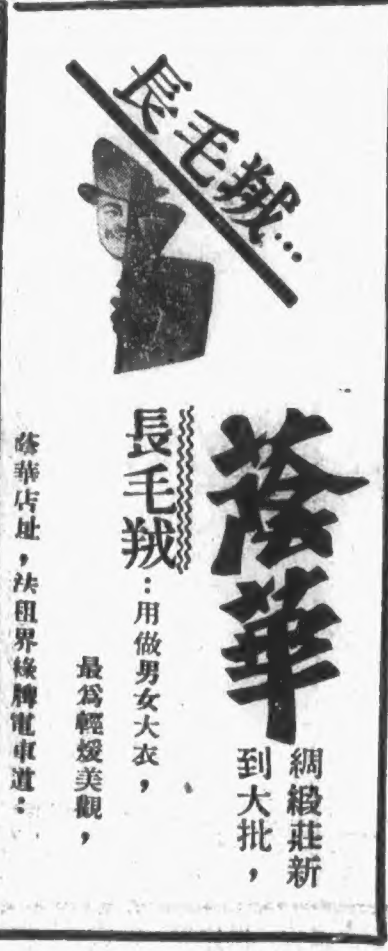 長毛羢…
蔭華
綢緞莊新
到大批，
長毛羢：用做男女大衣，
最為輕煖美觀，
蔭華店址，法租界綠牌電車道：